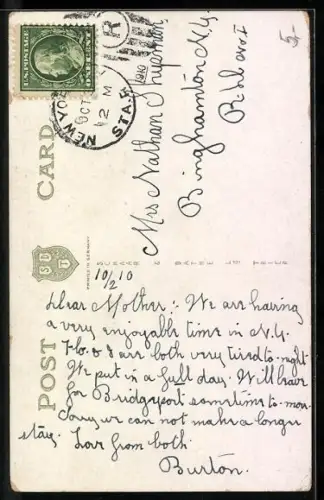 U.S. POSTAGE
ONE CENT
NEW YORK
OCT
2 M
1910
STA.
R
5
POST CARD
PRINTED IN GERMANY
SCHAAR & DATHE
Mrs Nathan
Binghamton N.Y.
10/2 10
Dear Mother:- We are having
a very enjoyable time in N.Y.
Flo. & I are both very tired to-night
We put in a full day. Will leave
for Bridgeport sometime to-mor.
Sorry we can not make a longer
stay. Love from both.
Burton.